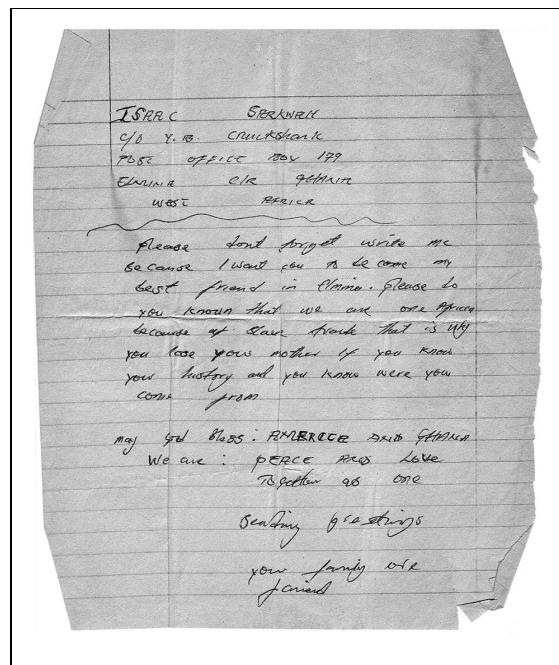 ISAAC SERKWAH
C/O Y.B. CRUCKSHANK
POST OFFICE BOX 179
ELMINA C/R GHANA
WEST AFRICA
please dont forget write me
because I want you to be come my
best friend in Elmina. please do
you known that we are one Africa
because of slave trade that is why
you lose your mother if you know
your history and you know were you
come from
may God Bless: AMERICE AND GHANA
We are: PEACE AND LOVE
Together as one
Sending greetings
your family are